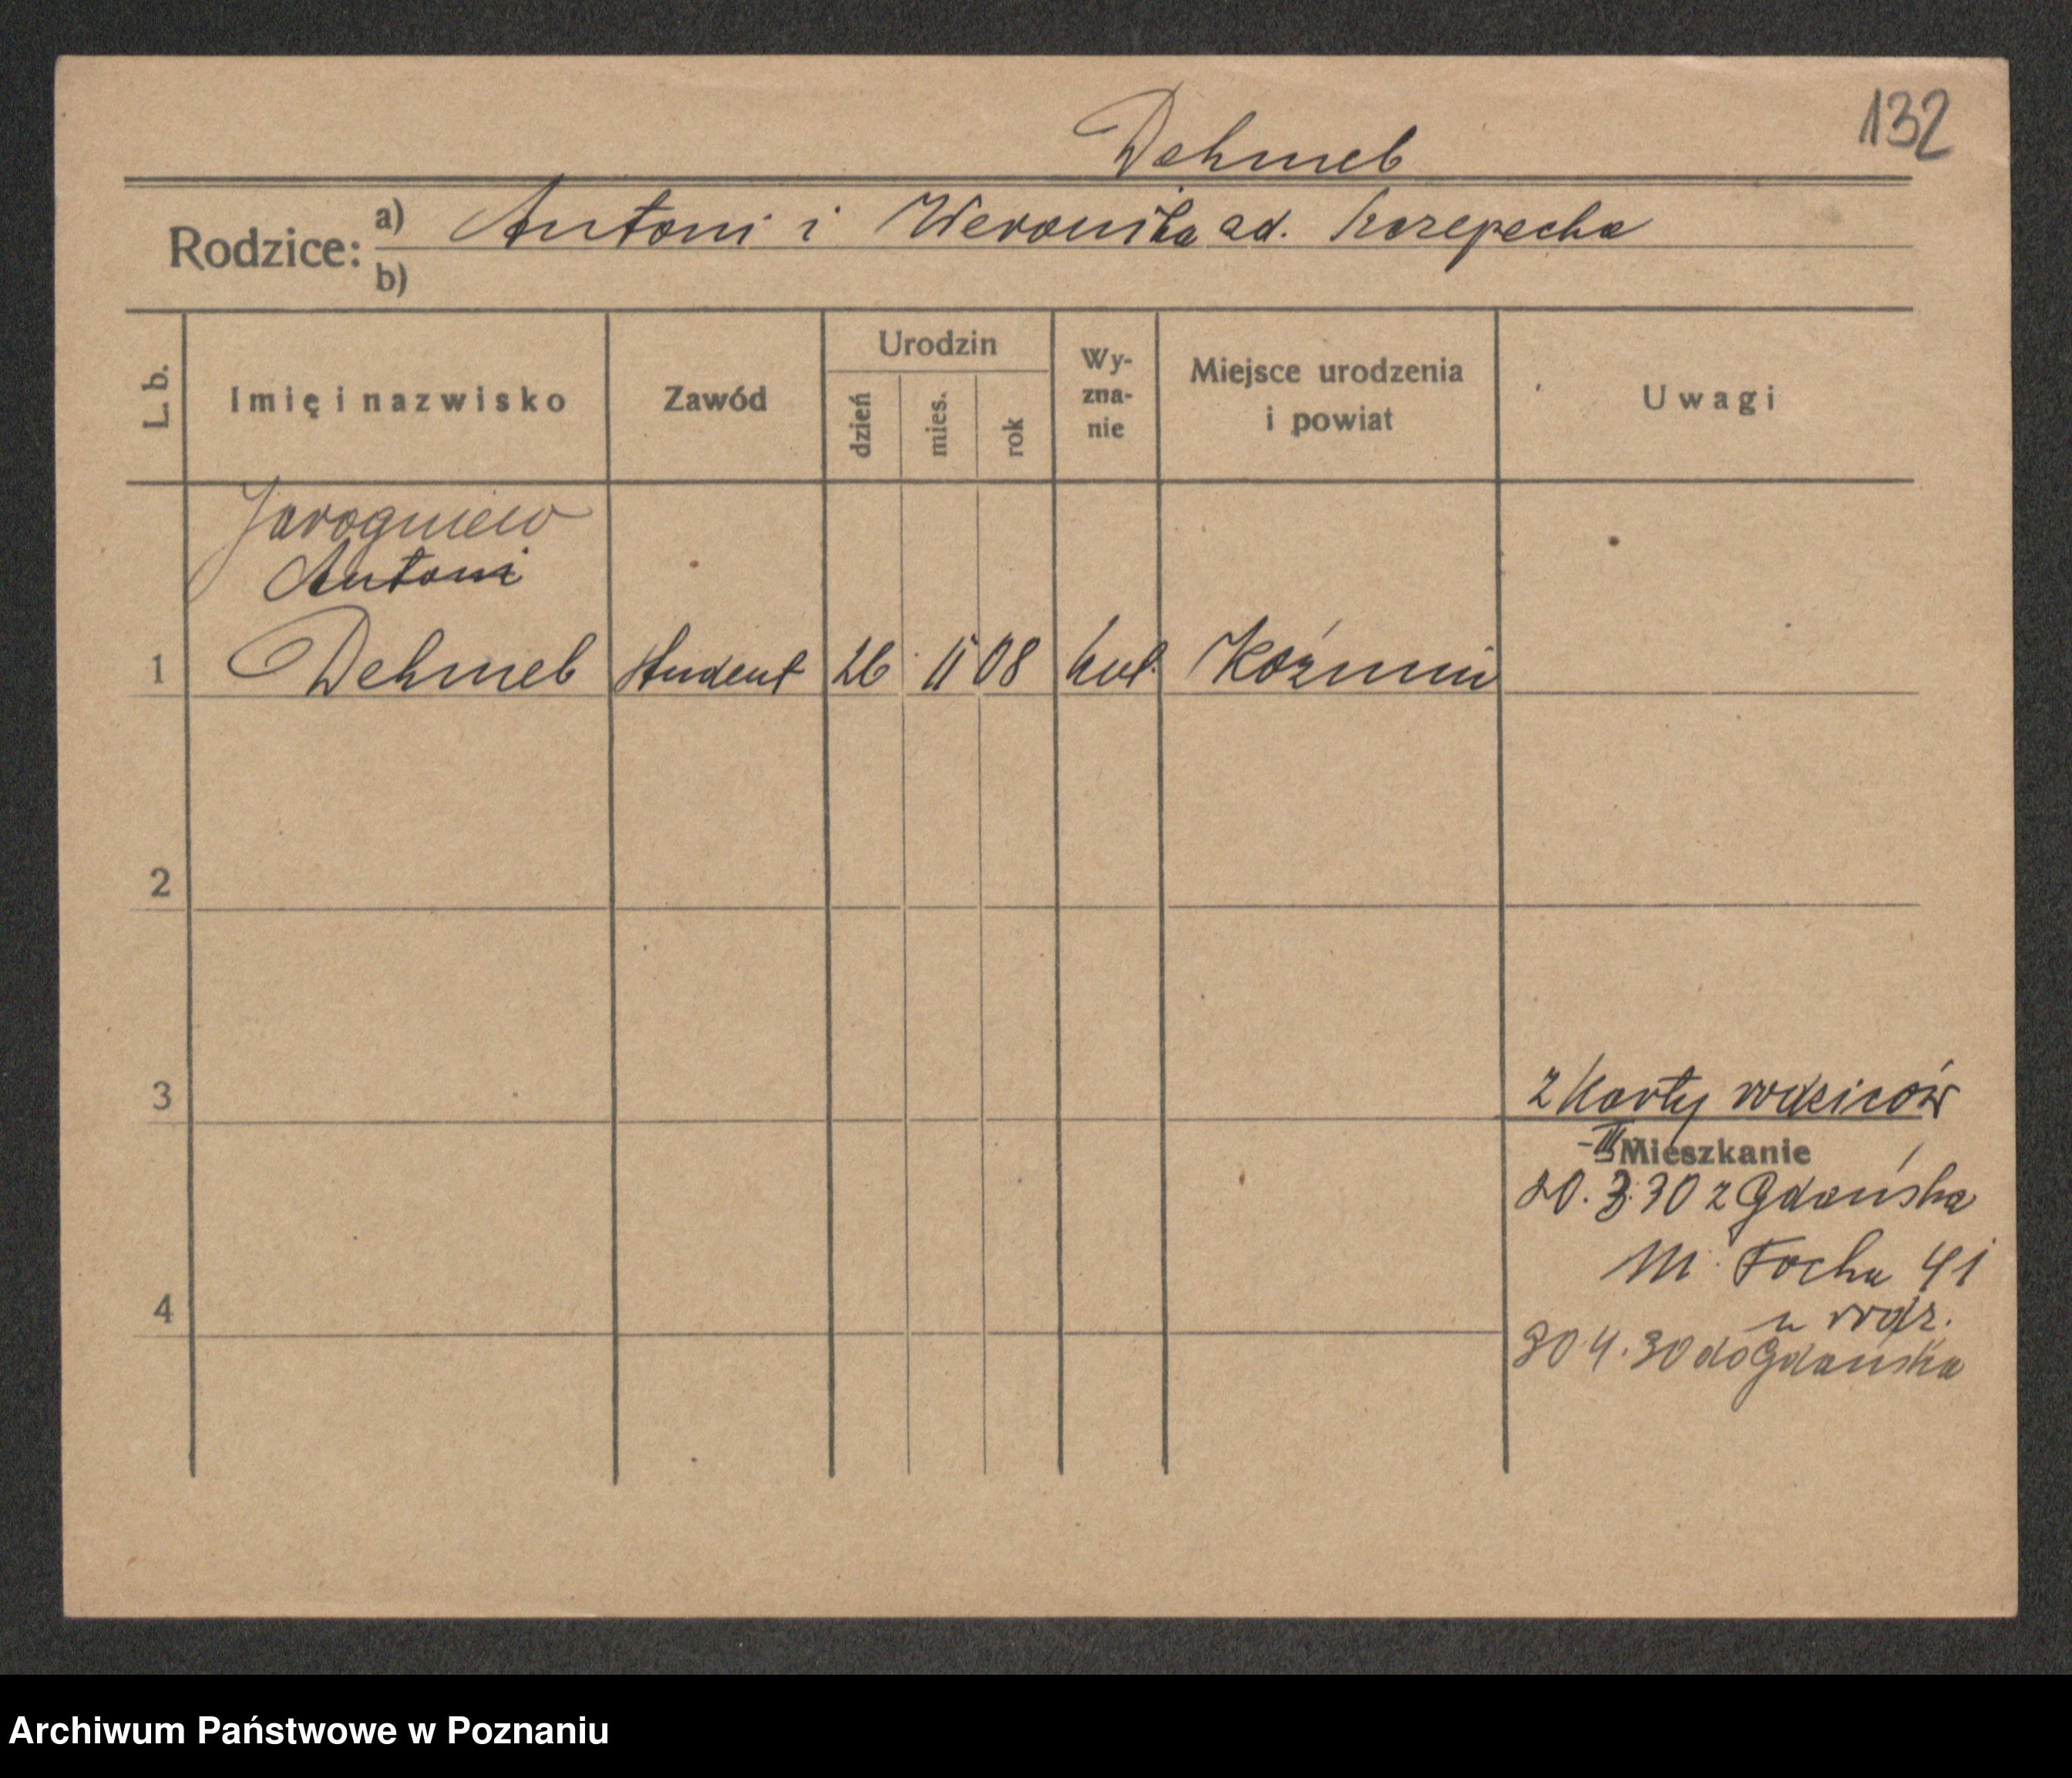 132
Dehmel
Rodzice: a) Antoni i Weronika ad. Krzepecka
b)
L. b. Imię i nazwisko Zawód Urodzin dzień mies. rok Wy-zna-nie Miejsce urodzenia i powiat Uwagi
Jarogniew
Antoni
1 Dehmel student 26 11 08 kat. Koźmin
2
3
z karty rodziców
III Mieszkanie
20. 3. 30 z Gdańska
M. Focha 41
4
u rodz.
30 4. 30 do Gdańska
Archiwum Państwowe w Poznaniu